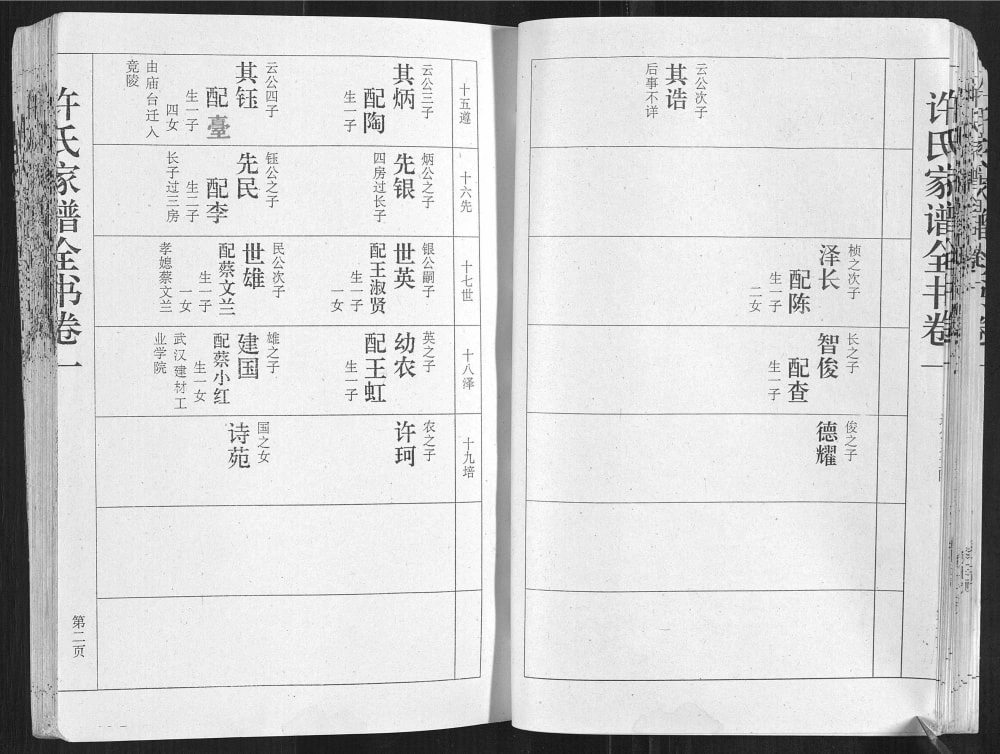 许氏家谱全书卷一
云公次子
其诰
后事不详
桢之次子
泽长
配陈
生一子
二女
长之子
智俊
配查
生一子
俊之子
德耀
十五遵
云公三子
其炳
配陶
生一子
云公四子
其钰
配臺
生一子
四女
由庙台迁入
竟陵
十六先
炳公之子
先银
四房过长子
钰公之子
先民
配李
生二子
长子过三房
十七世
银公嗣子
世英
配王淑贤
生一子
一女
民公次子
世雄
配蔡文兰
生一子
一女
孝媳蔡文兰
十八泽
英之子
幼农
配王虹
生一子
雄之子
建国
配蔡小红
生一女
武汉建材工
业学院
十九培
农之子
许珂
国之女
诗苑
许氏家谱全书卷一
第二页